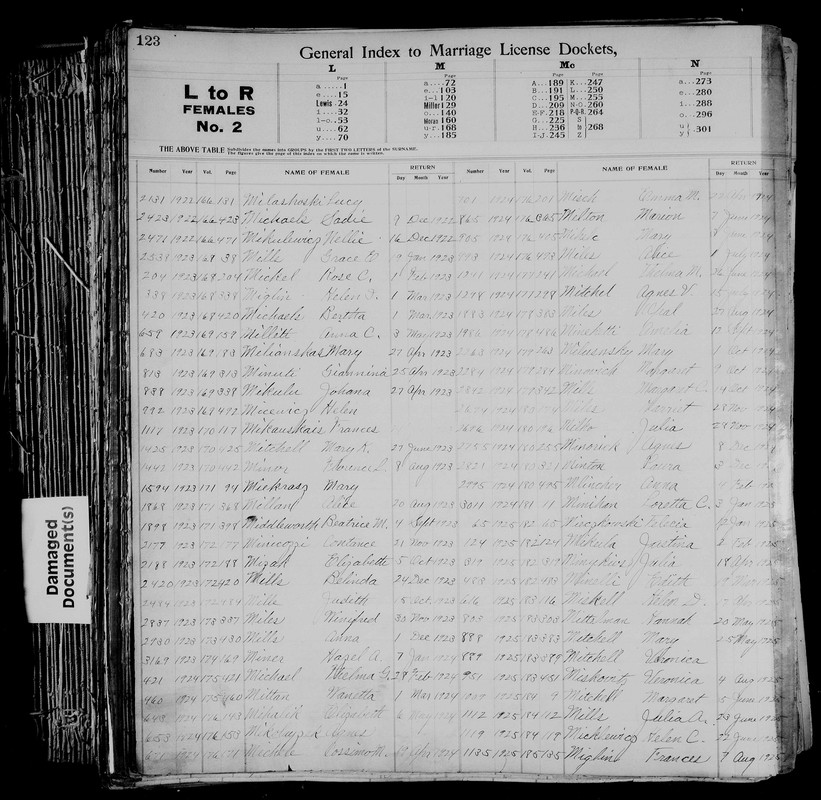 123
General Index to Marriage License Dockets,
L to R
FEMALES
No. 2
L
Page
a 1
e 15
Lewis 24
i 32
l-o 53
u 62
y 70
M
Page
a 72
e 103
i-l 120
Miller 129
o 140
Moran 160
u-r 168
y 185
Mc
Page Page
A 189 K 247
B 191 L 250
C 195 M 255
D 209 N-O 260
E-F 218 P-Q-R 264
G 225 S
H 236 to 268
I-J 245 Z
N
Page
a 273
e 280
i 288
o 296
u
y 301
THE ABOVE TABLE Subdivides the names into GROUPS by the FIRST TWO LETTERS of the SURNAME.
The figures give the page of this index on which the name is written.
Number Year Vol. Page NAME OF FEMALE RETURN Day Month Year
2131 1922 166 131 Milashoski Lucy
2423 1922 166 423 Michaels Sadie 9 Dec 1922
2471 1922 166 471 Mikulewicz Nellie 16 Dec 1922
2538 1923 168 38 Mills Grace E. 19 Jan 1923
204 1923 168 204 Mickel Rose C. 1 Feb 1923
338 1923 168 338 Miglin Helen 1 Mar 1923
420 1923 168 420 Michaels Bertha 1 Mar 1923
659 1923 169 159 Millett Anna C. 3 May 1923
683 1923 169 183 Milianskas Mary 27 Apr 1923
813 1923 169 313 Minuti Giannina 25 Apr 1923
838 1923 169 338 Mikulu Johana 27 Apr 1923
992 1923 169 492 Micenicz Helen
1117 1923 170 117 Mikauskais Frances
1425 1923 170 425 Mitchell Mary K. 27 June 1923
1442 1923 170 442 Miner Florence 8 Aug 1923
1594 1923 171 94 Mickrasz Mary
1868 1923 171 368 Millan Alice 20 Aug 1923
1898 1923 171 398 Middleworth Beatrice M. 4 Sept 1923
2177 1923 172 177 Constance 21 Nov 1923
2188 1923 172 188 Mizak Elizabeth 5 Oct 1923
2420 1923 172 420 Mills Belinda 24 Dec 1923
2484 1923 172 484 Mills Judith 15 Oct 1923
2837 1923 173 337 Miles Winifred 30 Nov 1923
2930 1923 173 430 Mills Anna 1 Dec 1923
3169 1923 174 169 Miner Hazel A. 7 Jan 1924
421 1924 175 421 Michael Thelma G. 28 Feb 1924
460 1924 175 460 Mittan Wanetta 1 Mar 1924
643 1924 176 143 Mihalik Elizabeth 6 May 1924
653 1924 176 153 Agnes
671 1924 176 171 Michele Apr 1924
Number Year Vol. Page NAME OF FEMALE RETURN Day Month Year
701 1924 176 201 Misch Emma M. 1924
865 1924 176 365 Milton Marion 7 June 1924
905 1924 176 405 Mikelc Mary June 1924
1924 176 Miles Alice 1 July 1924
1241 1924 177 241 Michael Thelma M. 26 June 1924
1298 1924 177 298 Mitchel Agnes V. 1924
1883 1924 178 383 Miles Opal 27 Aug 1924
1986 1924 178 486 Amelia 12 Sept 1924
2263 1924 179 263 Mary 1 Oct 1924
2284 1924 179 284 Minowich Margaret 9 Oct 1924
2842 1924 179 342 Mills Margaret C. Oct 1924
1924 180 Miles Harriet 28 Nov 1924
2696 1924 180 196 Millo Julia 28 Nov 1924
2755 1924 180 255 Minorick Agnes 8 Dec 1924
2821 1924 180 321 Minton Laura 3 Dec
2995 1924 180 495 Minchin Anna Feb
3011 1924 181 11 Minihan Loretta C. 3 Jan 1925
65 1925 182 65 Mieczkowski Felicia 12 Jan 1925
124 1925 182 124 Mikula Justina 2 Feb 1925
319 1925 182 319 Minykius Julia 18 Apr 1925
483 1925 182 483 Minelli 9 Mar 1925
616 1925 183 116 Miskell Helen D. Apr 1925
803 1925 183 303 Mittelman Hannah 20 May 1925
883 1925 183 383 Mitchell Mary 25 May 1925
889 1925 183 389 Mitchell Veronica
951 1925 183 451 Miskowitz Veronica 4 Aug 1925
1009 1925 184 9 Mitchell Margaret 5 June 1925
1112 1925 184 112 Mills Julia A. 23 June 1925
1119 1925 184 119 Mickiewicz Helen C. 22 June 1925
1135 1925 184 135 Miglin Frances 7 Aug 1925
Damaged
Document(s)